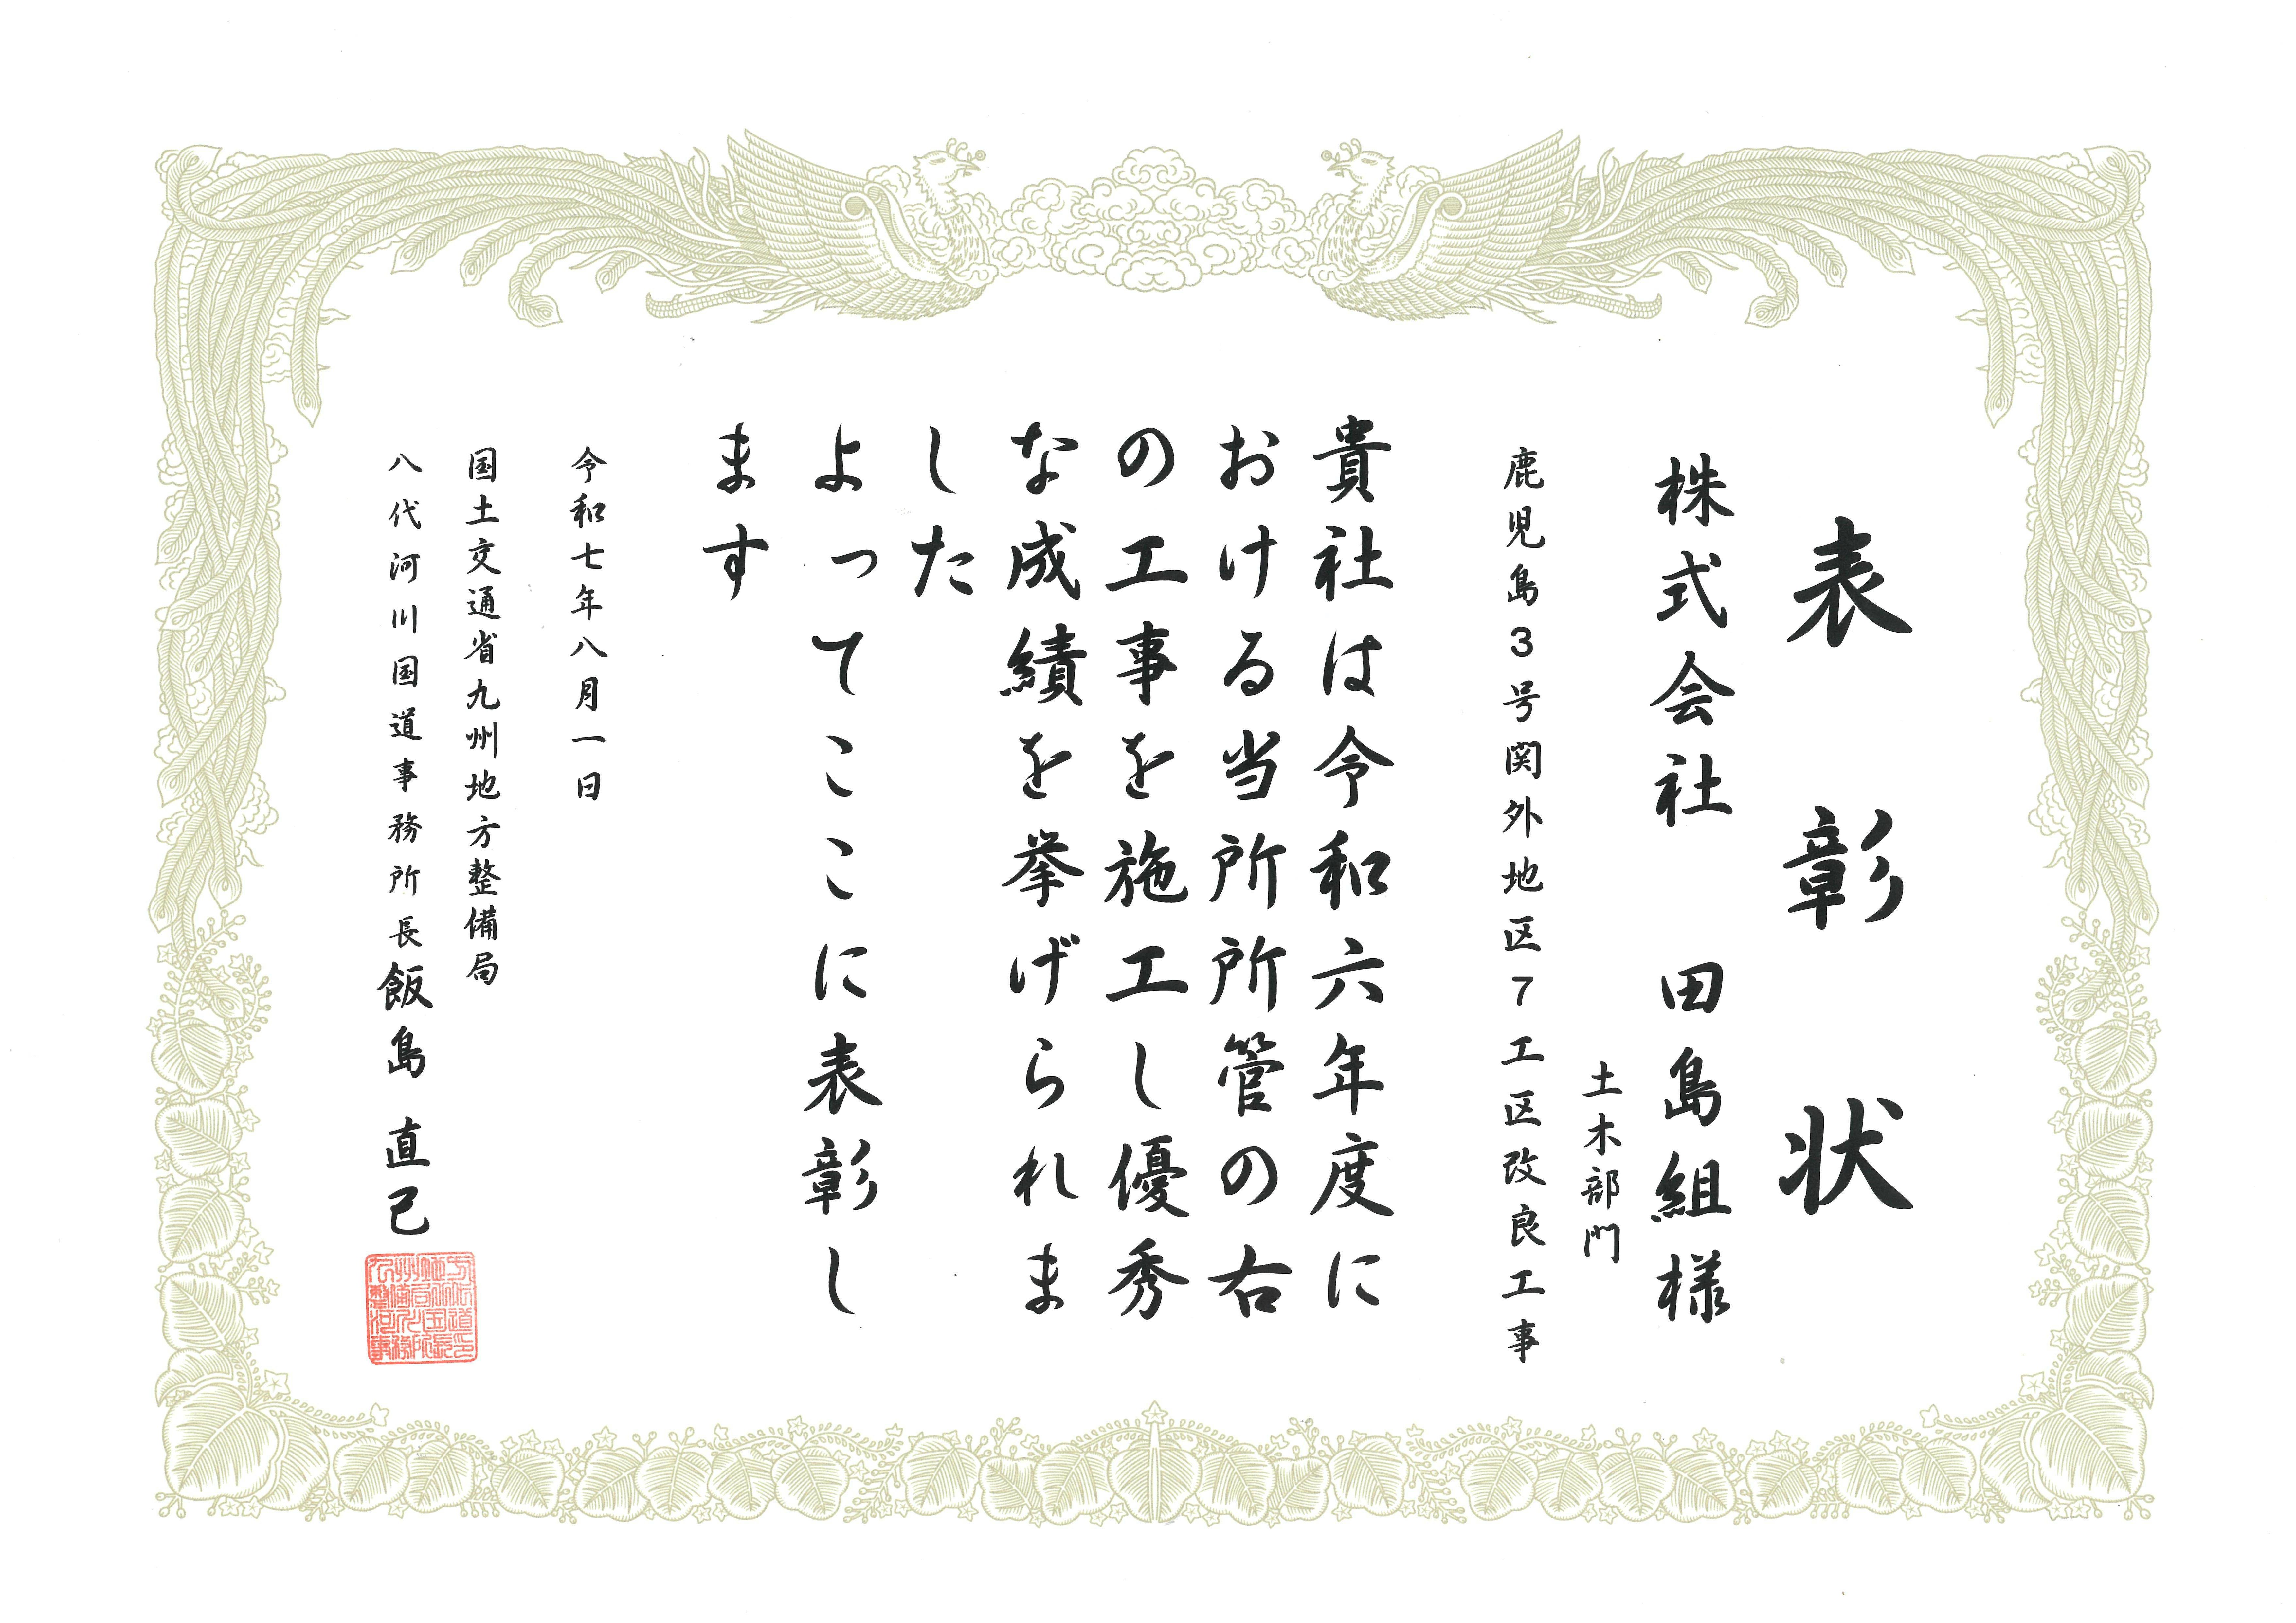 表彰状
株式会社 田島組様
土木部門
鹿児島3号関外地区7工区改良工事
貴社は令和六年度に
おける当所所管の右
の工事を施工し優秀
な成績を挙げられま
した
よってここに表彰し
ます
令和七年八月一日
国土交通省九州地方整備局
八代河川国道事務所長 飯島 直己